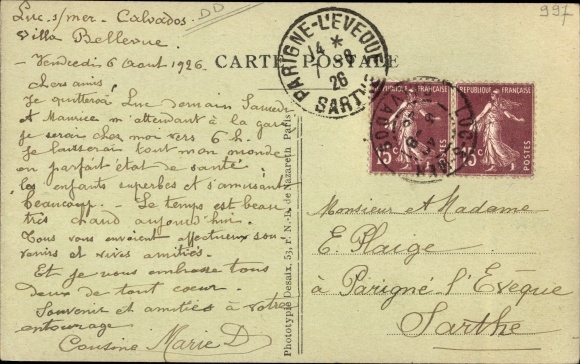 Luc s/mer - Calvados.
Villa Bellevue.
DD
997
CARTE POSTALE
- Vendredi 6 Aout 1926
Chers amis,
Je quitterai Luc demain Samedi
et Maurice m'attendant à la gare
je serai chez moi vers 6 h.
Je laisserai tout mon monde
en parfait état de santé
les enfants superbes et s'amusant
beaucoup. - Le temps est beau
très chaud aujourd'hui.
Tous vous envoient affectueux sou-
venirs et vives amitiés.
Et je vous embrasse tous
deux de tout cœur.
Souvenir et amitiés à votre
entourage
Cousine Marie D
Phototypie Desaix, 53, P. N.-D. de Nazareth Paris
PARIGNE-L'EVEQUE
14 *
7 - 8
26
SARTHE
REPUBLIQUE FRANÇAISE
15c
POSTES
REPUBLIQUE FRANÇAISE
15c
POSTES
LUC-S-MER
CALVADOS
Monsieur et Madame
E. Plaige
à Parigné l'Evêque
Sarthe